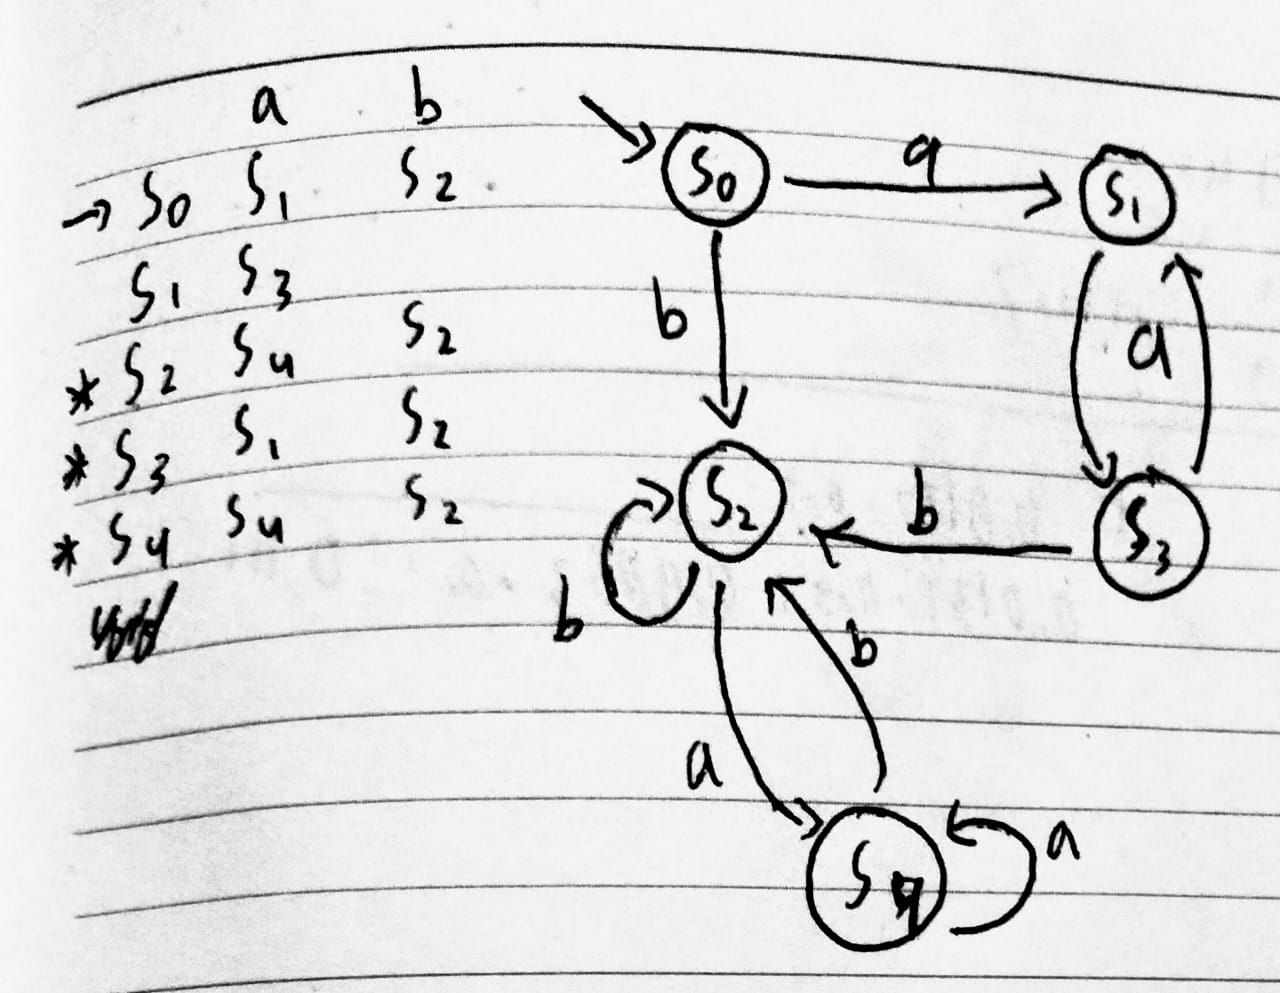 a b
→ S0 S1 S2
S1 S3
* S2 S4 S2
* S3 S1 S2
* S4 S4 S2
S0 a S1
b
a
S2 b S3
b
b
a
S4 a